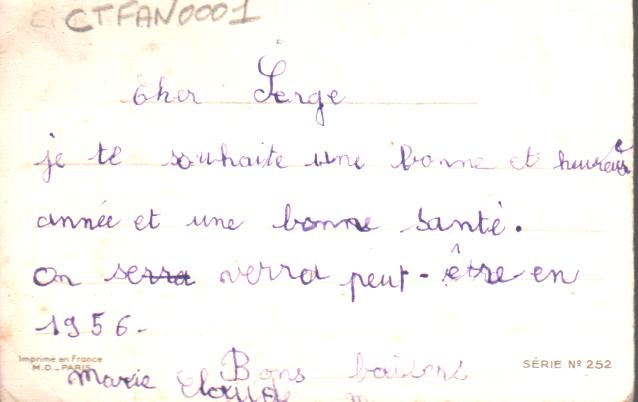 CTFAN0001
Cher Serge
je te souhaite une bonne et heureuse
année et une bonne santé.
On serra verra peut-être en
1956.
Imprimé en France
M.D. _ PARIS
SÉRIE Nº 252
Bons baisers
Marie